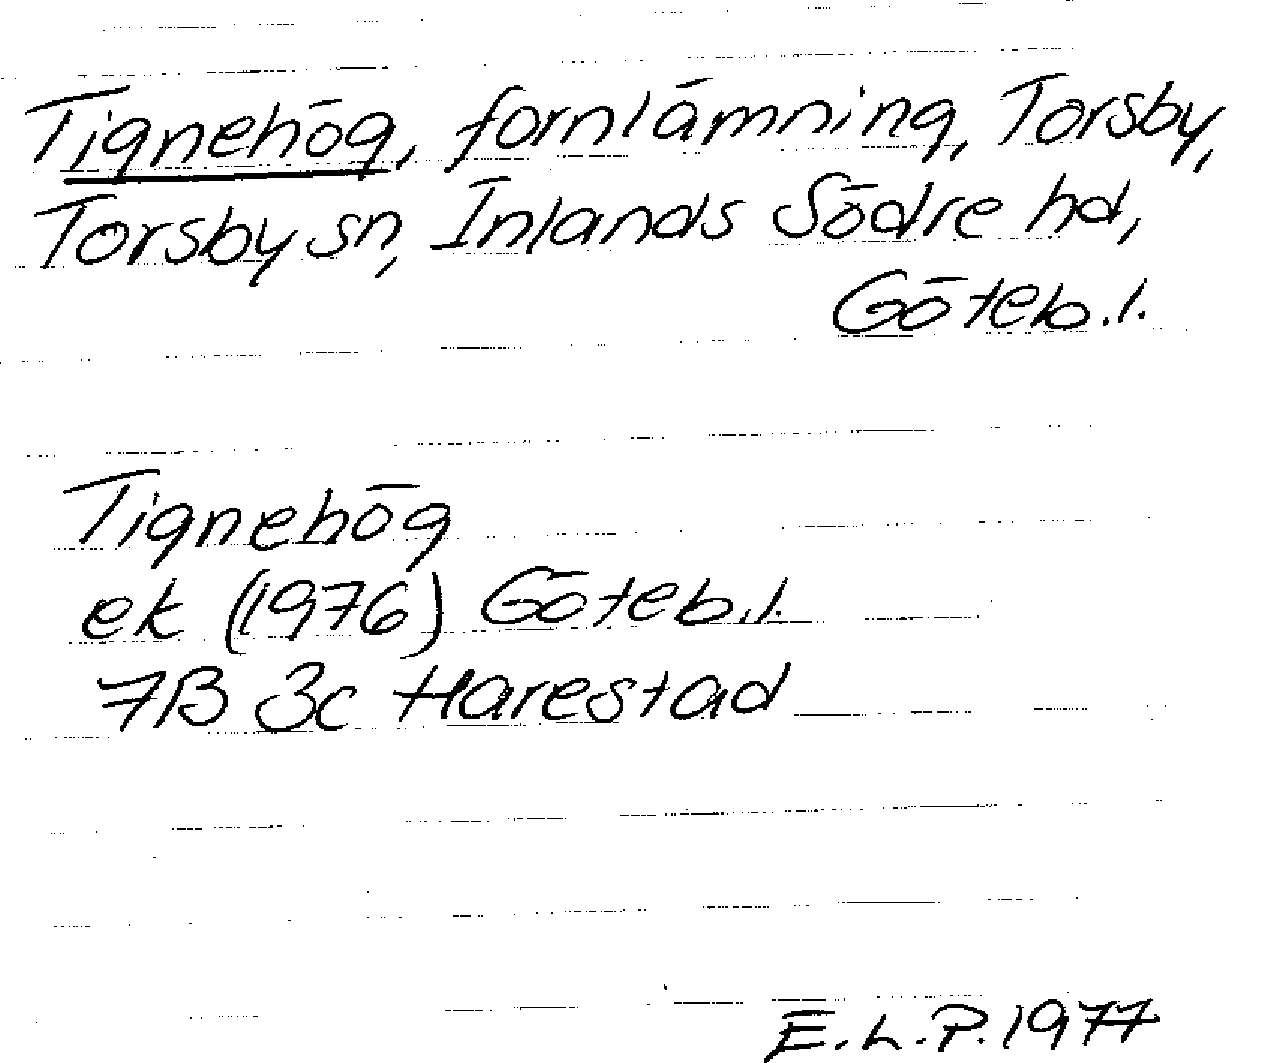 Tignehög, fornlämning, Torsby,
Torsby sn, Inlands Södre hd,
Göteb.l.
Tignehög
ek (1976) Göteb.l.
7B 3c Harestad
E.L.P. 1977